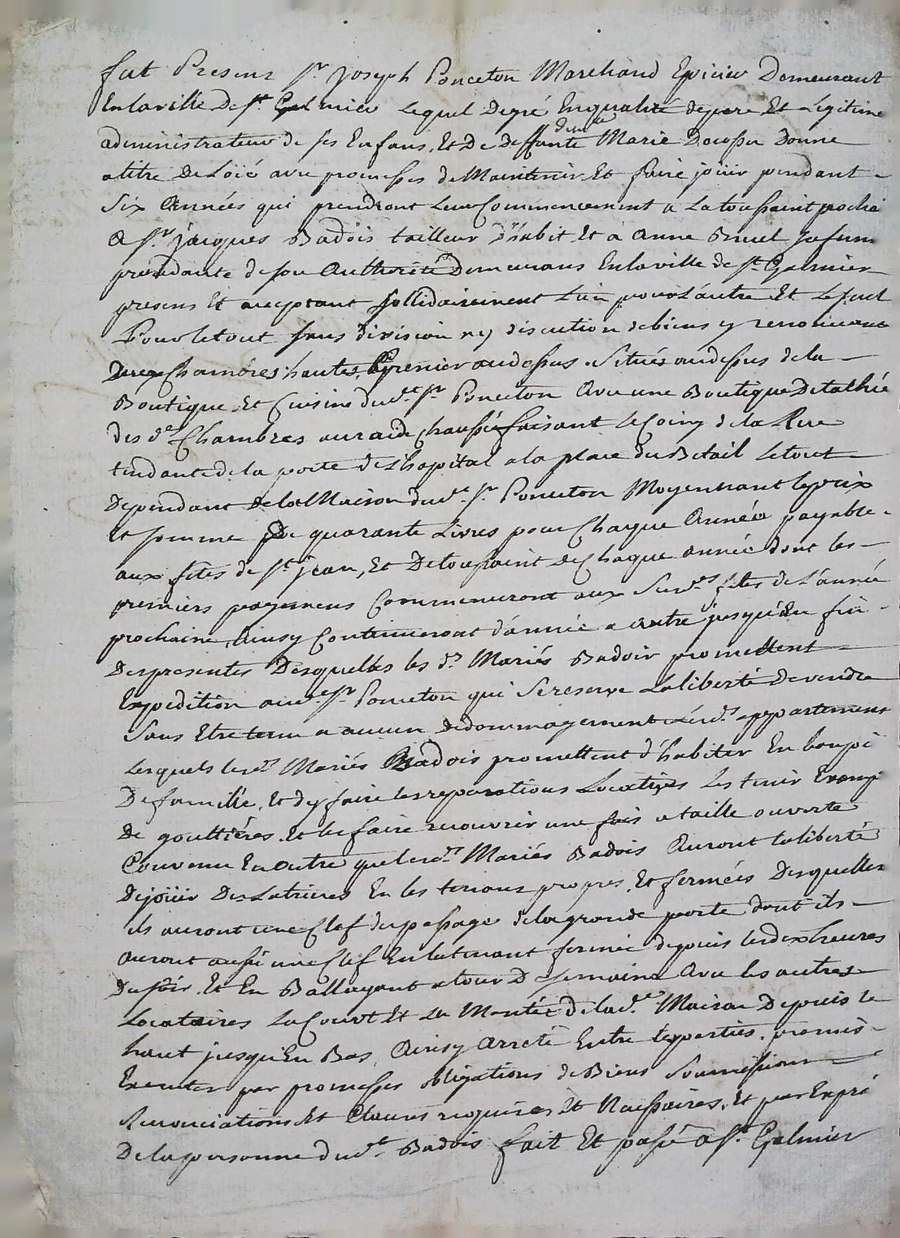 fut Present Sr Joseph Ponceton Marchand Epicier Demeurant
En la ville de St Galmier Lequel De gré En qualité de pere Et Legitime
administrateur de ses Enfans, Et De deffunte Marie Donne
a titre De Loïé avec promesses de Maintenir Et faire joüir pendant
Six Années qui prendront Leur Commencement a La toussaint prochε
A Sr jacques Badois tailleur D'habit Et à Anne sa fame
procedante de son Authorité Demeurans En la ville de St Galmier
presens Et acceptant Sollidairement L'un pour L'autre Et Le seul
Pour le tout sans division ny discution de biens y renonceant
Deux Chambres hautes, Grenier au dessus Situés au dessus de la
Boutique Et Cuisine dudt Sr Ponceton Avec une Boutique
des de Chambres au raide Chaussé faisant le Coing de la Rue
tendante de la porte de L'hopital a la place du Betail Le tout
Dependant De la Maison dudt Sr Ponceton Moyennant le prix
Et somme De quarante Livres pour Chaque Année payable
aux fêtes de St jean, Et De toussaint de Chaque année dont les
premiers payemens Commenceront aux Suivtes fêtes de L'année
prochaine, Ainsy Continueront d'année a autre jusqu'En fin
Des presentes Desquelles les ds Mariés Badois promettent
Expedition audt Sr Ponceton qui Se reserve La liberté De vendre
Sans Etre tenu a aucun dedommagement Lesds appartement
Lesquels lesds Mariés Badois promettent d'habiter En bon pé
De famille, Et d'y faire les reparations Locatives Les tenir
De gouttiéres Et les faire recouvrir une fois a taille ouverte
Convenu En outre que lesds Mariés Badois Auront la liberté
De joüir Des Latrines En les tenans propres, Et fermées Desquelles
ils auront une Clef du passage de la grande porte dont ils
auront aussi une Clef En la tenant fermée depuis les dix heures
Du soir, Et En Ballayant a tour De semaine Avec les autres
Locataires La Court Et La Montée de lade Maison Depuis le
haut jusqu'En Bas, Ainsy arreté Entre les parties, promis
Executer par promesses obligations de Biens Soumissions
Renonciations Et Clauses requises Et Nécessaires, Et par Expré
De la personne dudt Badois fait Et passé a St Galmier